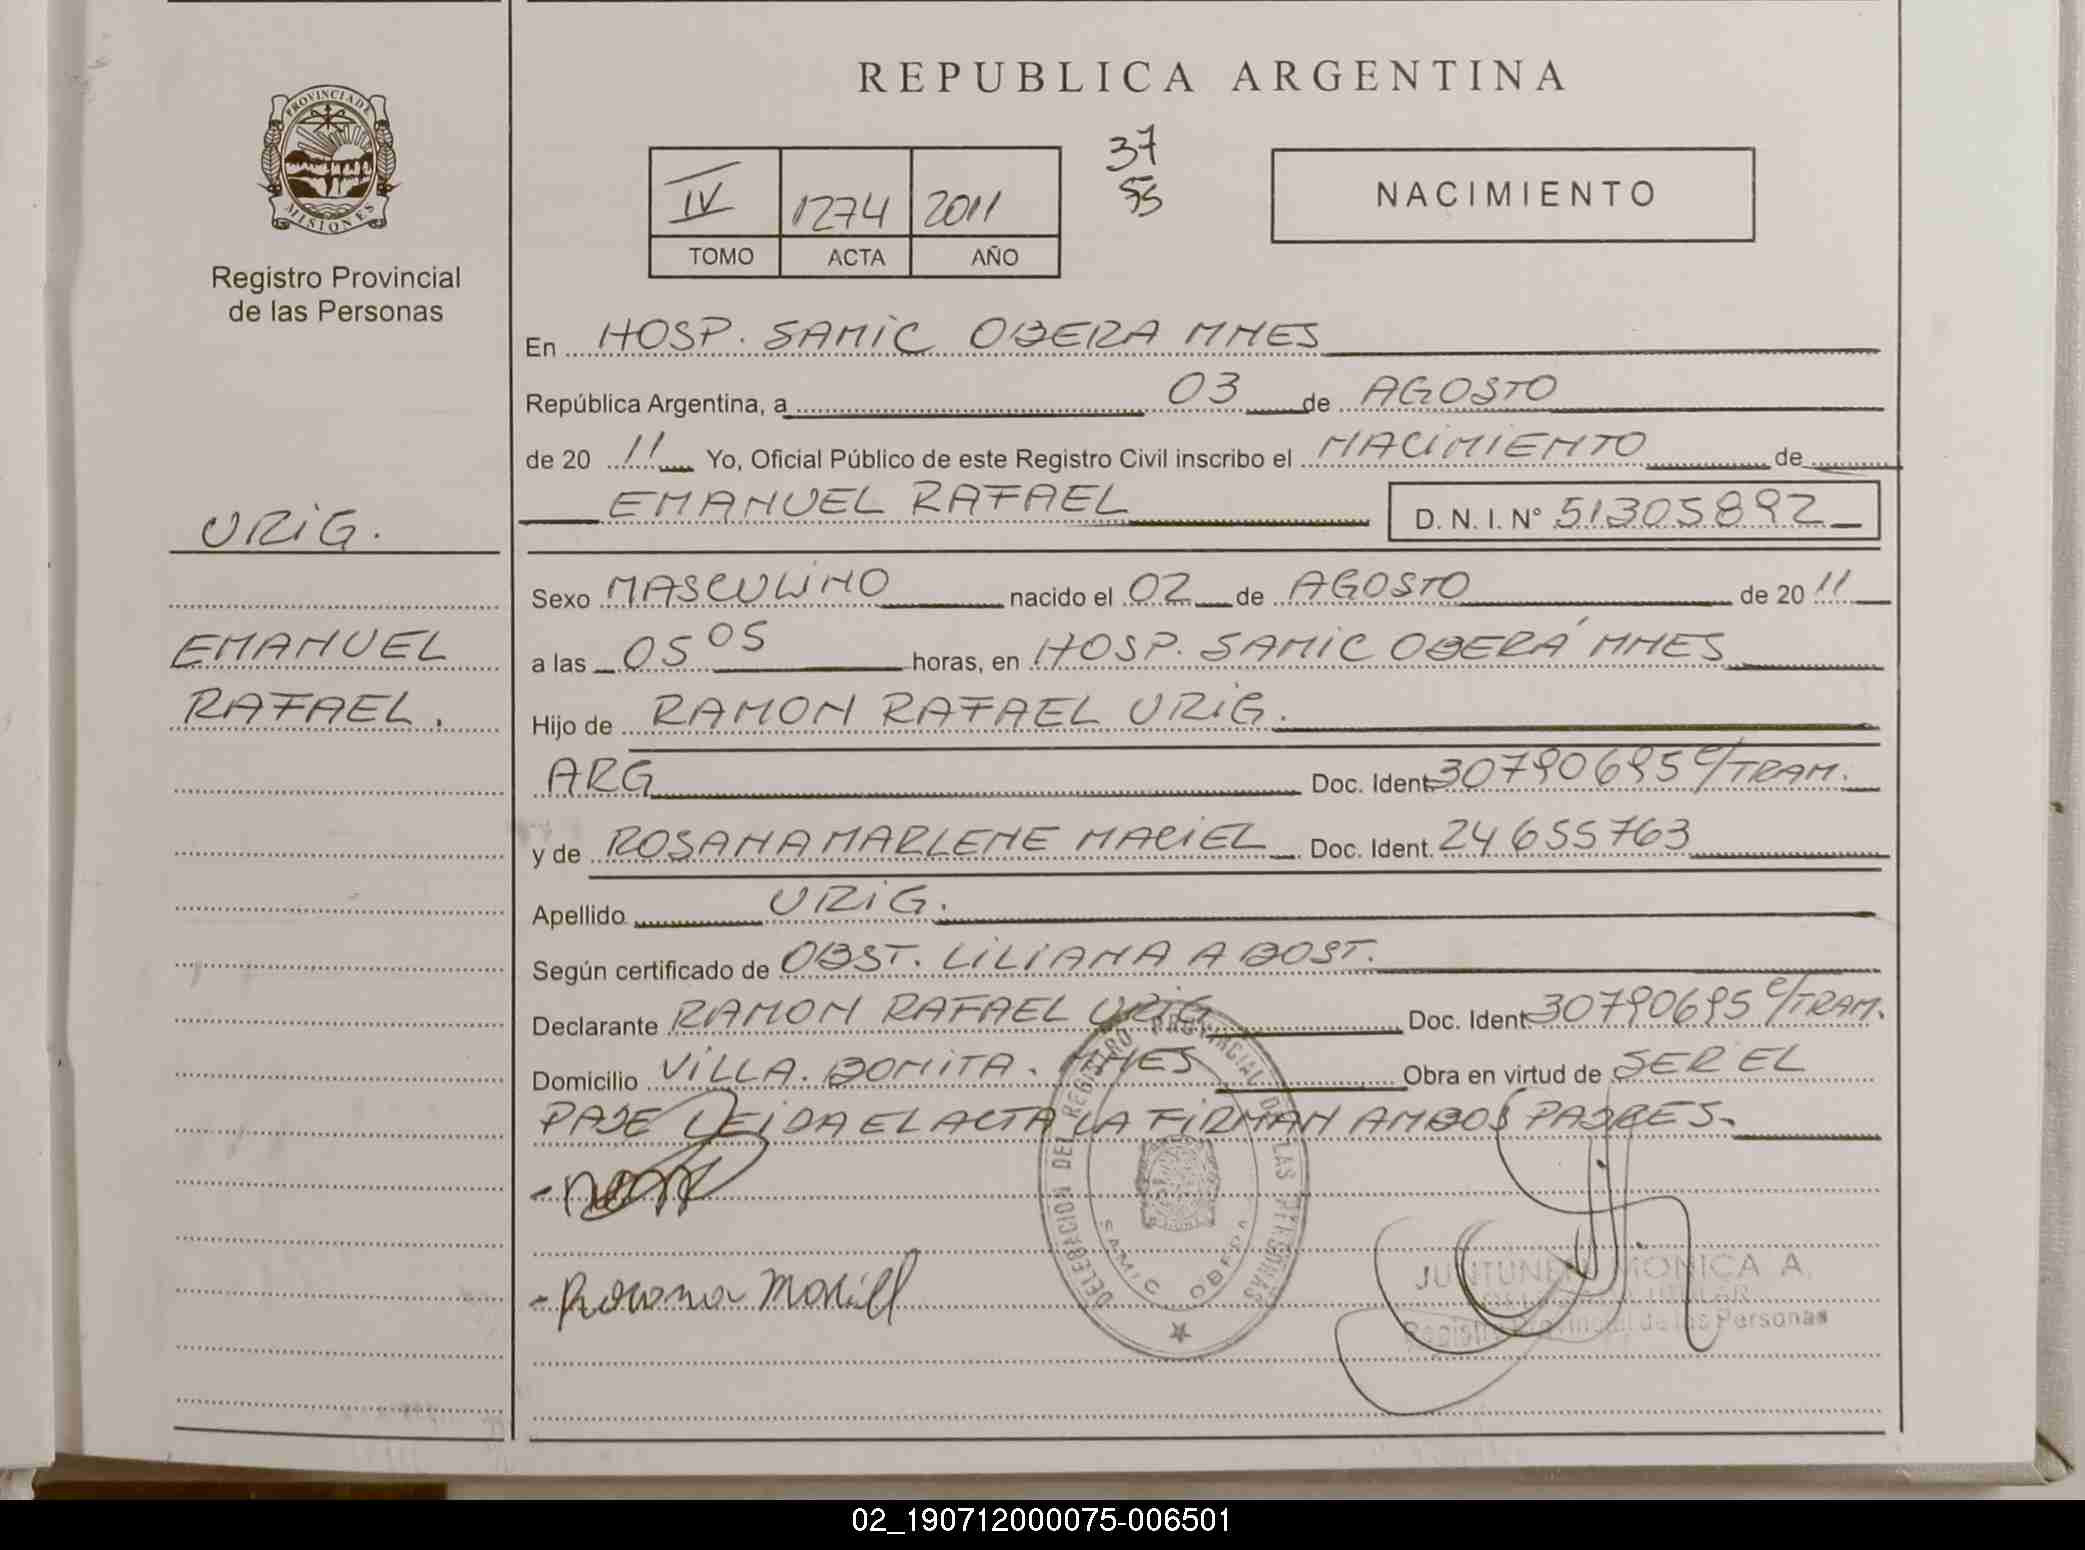 REPUBLICA ARGENTINA
PROVINCIA DE MISIONES
Registro Provincial
de las Personas
IV 1274 2011
TOMO ACTA AÑO
37
55
NACIMIENTO
En HOSP. SAMIC OBERA MNES
República Argentina, a 03 de AGOSTO
de 20 11 Yo, Oficial Público de este Registro Civil inscribo el NACIMIENTO de
EMANUEL RAFAEL D. N. I. N° 51305892
URIG.
EMANUEL
RAFAEL.
Sexo MASCULINO nacido el 02 de AGOSTO de 20 11
a las 05 05 horas, en HOSP. SAMIC OBERÁ MNES
Hijo de RAMON RAFAEL URIG.
ARG Doc. Ident. 30790695 e/TRAM.
y de ROSANA MARLENE MACIEL Doc. Ident. 24 655 763
Apellido URIG.
Según certificado de OBST. LILIANA A BOST.
Declarante RAMON RAFAEL URIG Doc. Ident. 30790695 e/TRAM.
Domicilio VILLA. BONITA. MNES Obra en virtud de SER EL
PADE LEIDA EL ACTA LA FIRMAN AMBOS PADRES.
DELEGACION DEL REGISTRO PROVINCIAL DE LAS PERSONAS
SAMIC OBERA
MONICA A.
Registro Provincial de las Personas
02_190712000075-006501